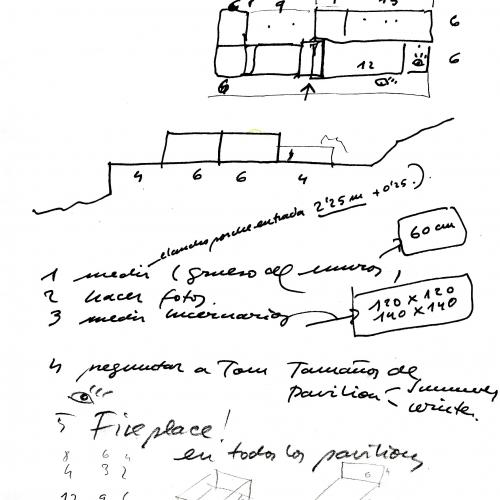 6 9 13
6
12
6
6
4 6 6 4
el ancho porche entrada 2'25 m + 0'25.
60 cm
1 medir (grueso de muros)
2 hacer fotos.
3 medir lucernarios
120 x 120
140 x 140
4 preguntar a Tom Tamaños de
pavilion - Summer
winter.
5 Fireplace!
en todos los pavilions
8 6 4
4 3 2
12 9 6
6